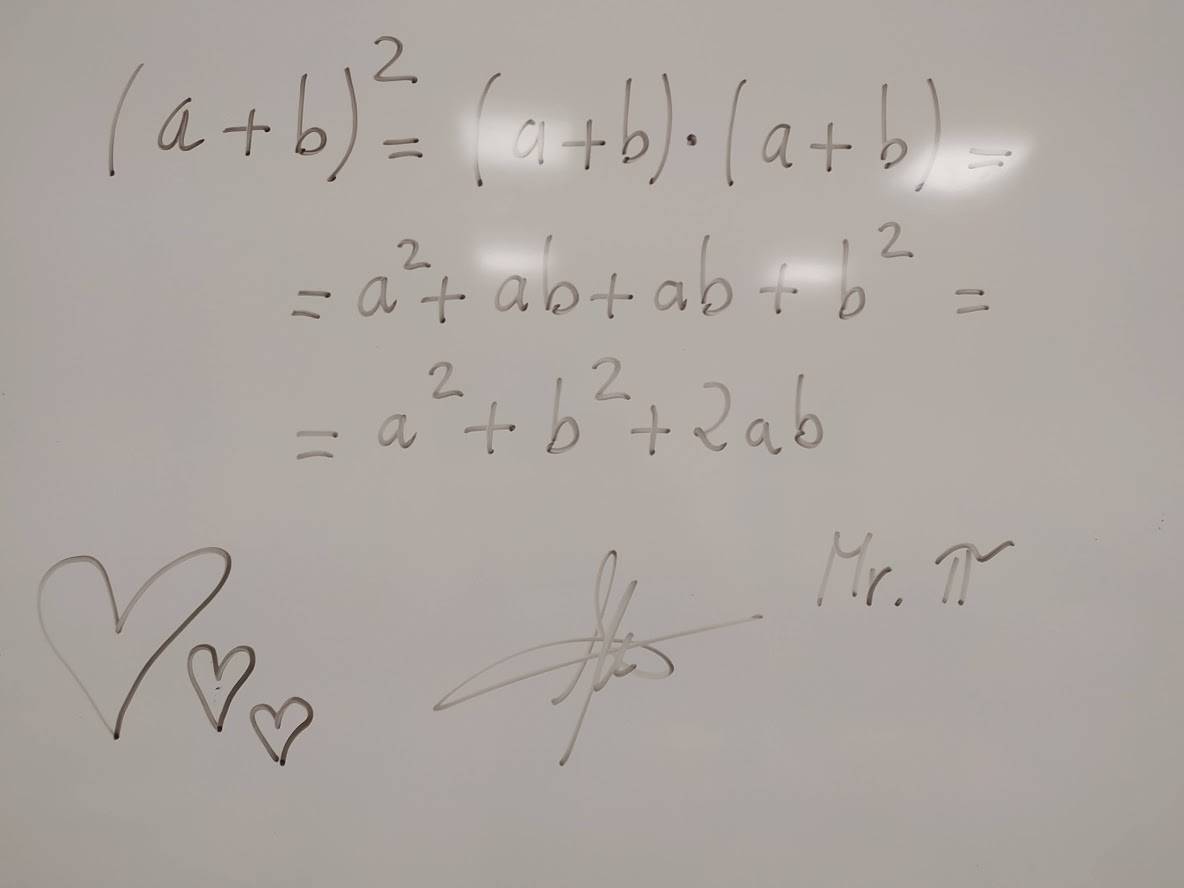 (a+b)² = (a+b)·(a+b) =
= a² + ab + ab + b² =
= a² + b² + 2ab
Mr. π